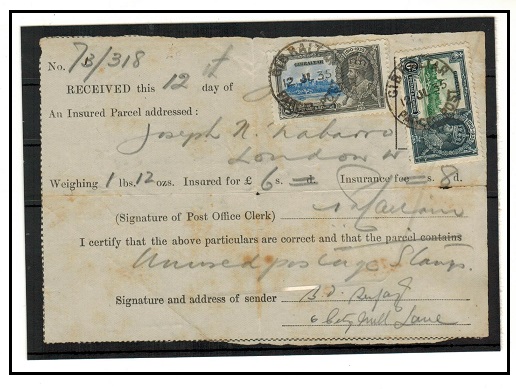 No. 7B/318
GIBRALTAR
12 JL 35
PARCEL POST
GIBRALTAR
12 JL 35
PARCEL POST
RECEIVED this 12th day of
An Insured Parcel addressed:
Joseph N. Nabarro
London W
Weighing 1 lbs. 12 ozs. Insured for £ 6 s. d. Insurance fee s. 8 d.
(Signature of Post Office Clerk)
I certify that the above particulars are correct and that the parcel contains
Unused postage stamps.
Signature and address of sender B. D.
6 City Mill Lane